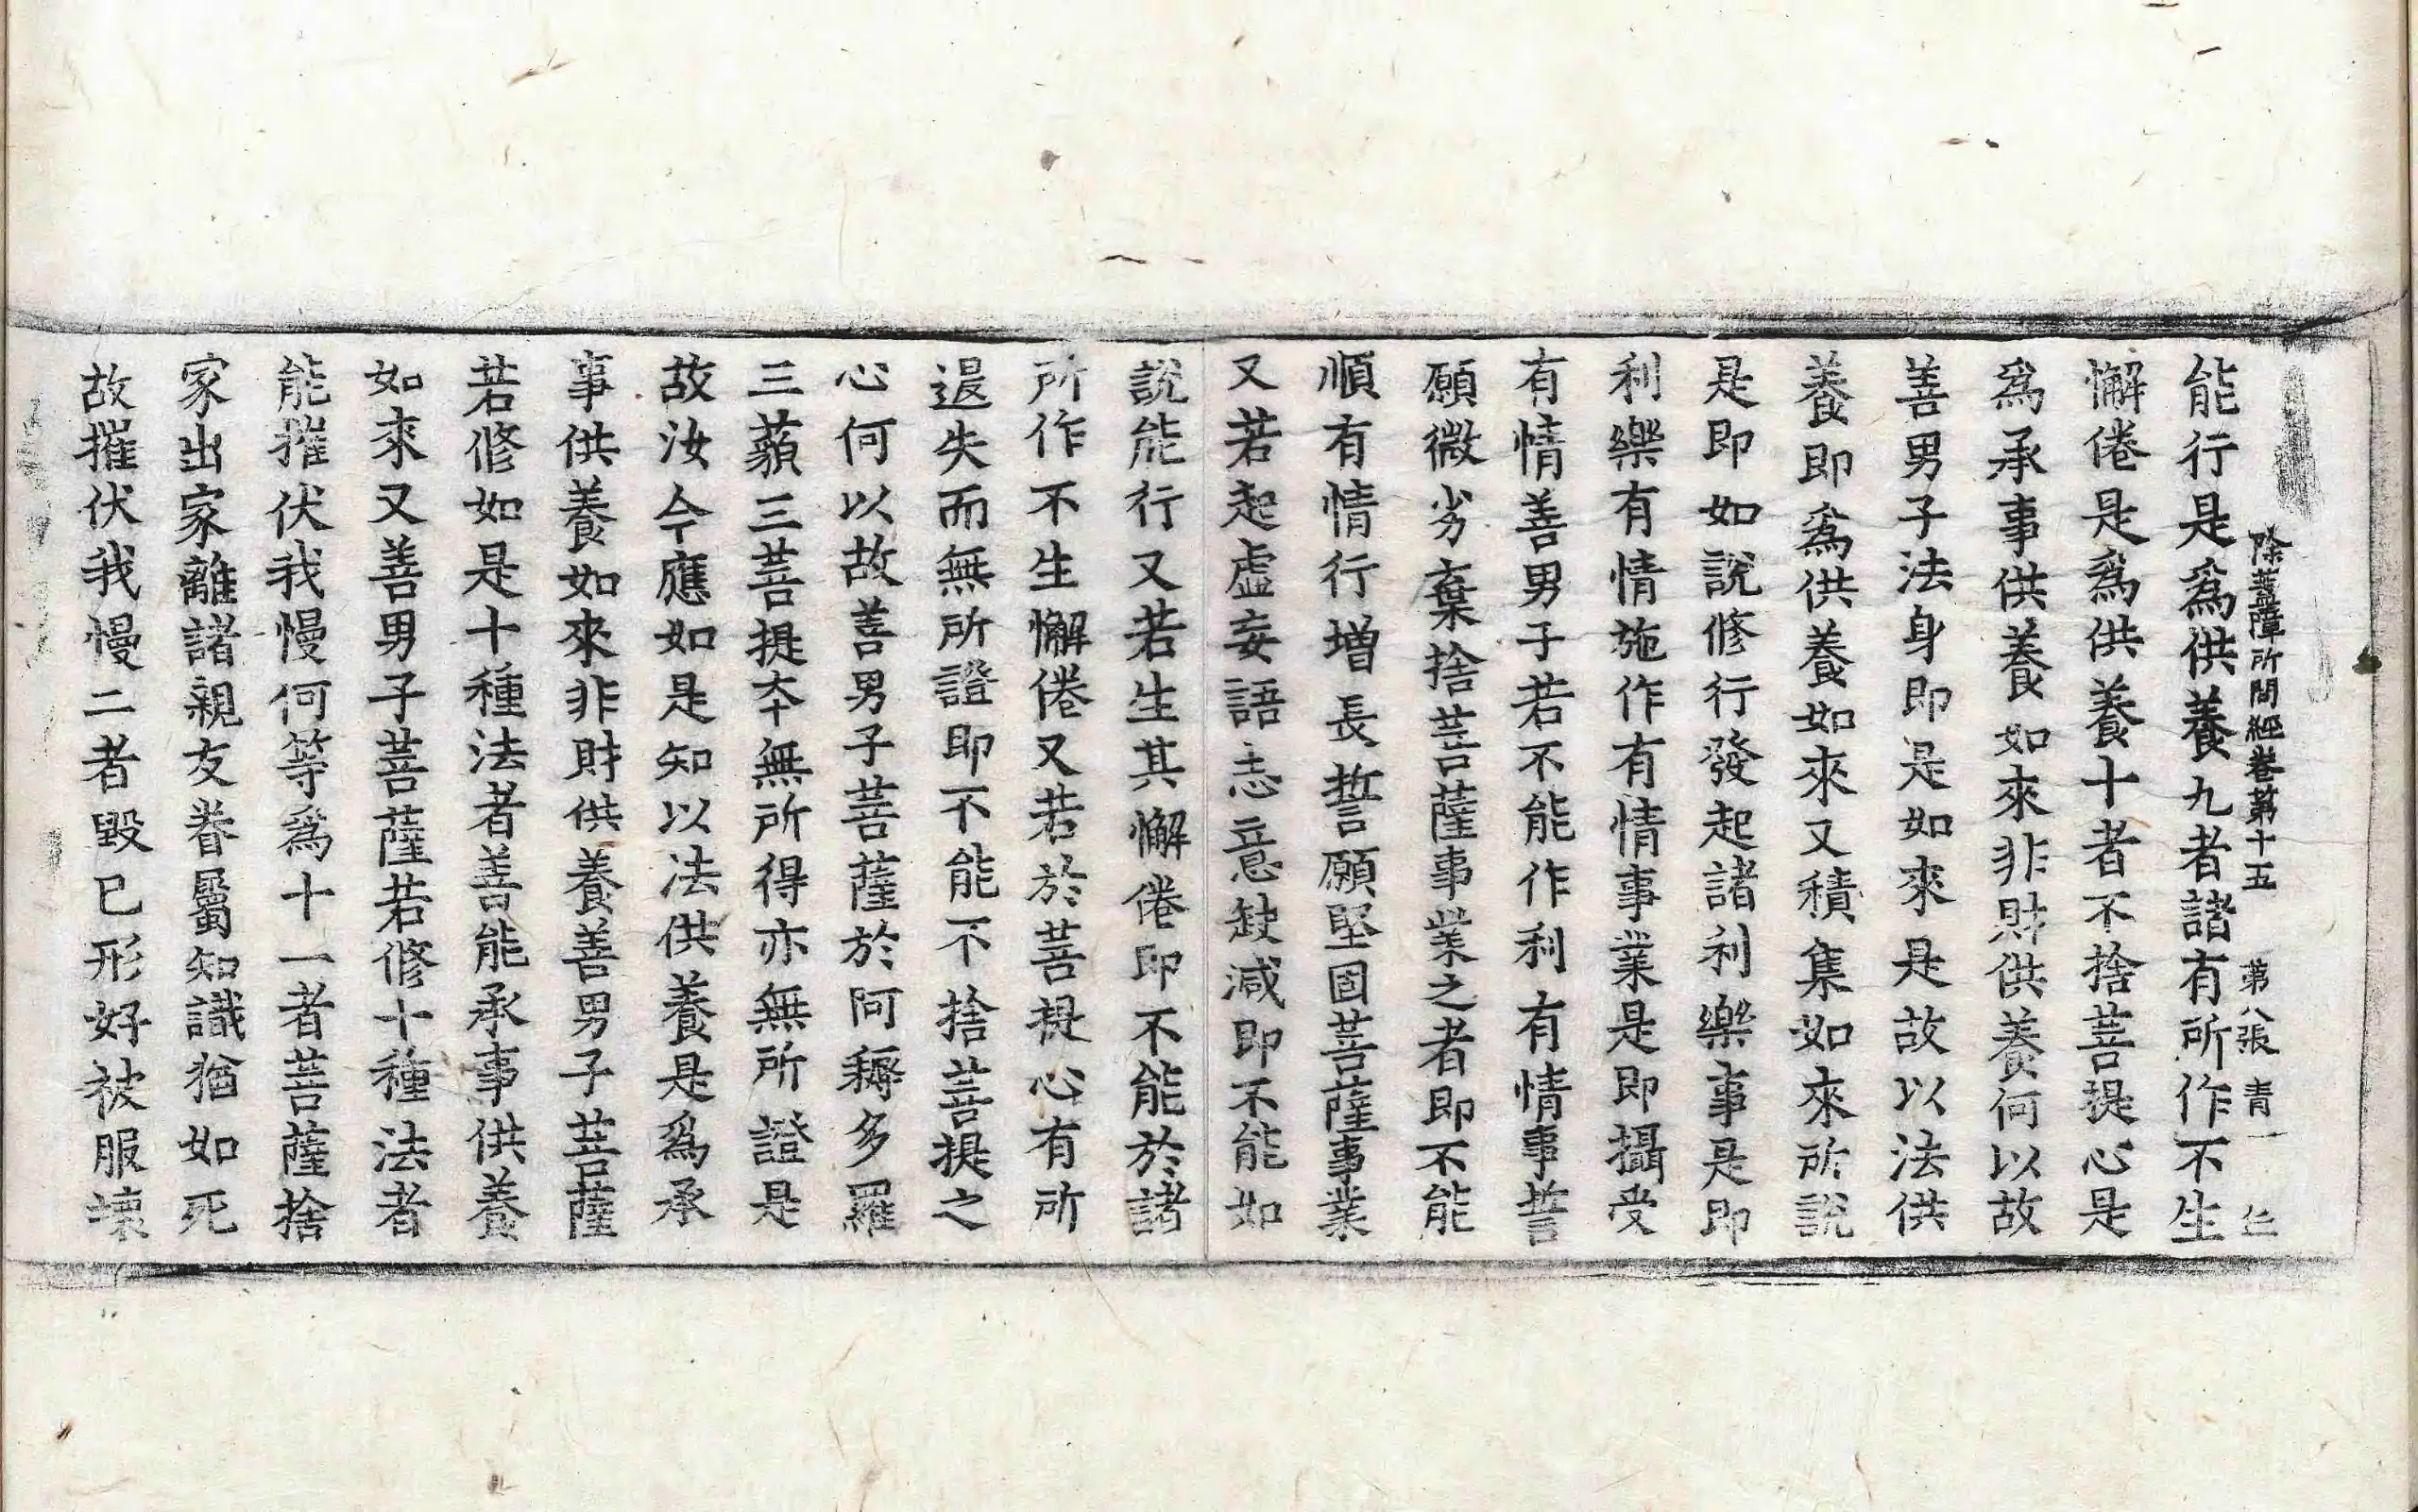 除蓋障所問經卷第十五　第八張　青
能行是爲供養九者諸有所作不生
懈倦是爲供養十者不捨菩提心是
爲承事供養如來非財供養何以故
善男子法身即是如來是故以法供
養即爲供養如來又積集如來所說
是即如說修行發起諸利樂事是即
利樂有情施作有情事業是即攝受
有情善男子若不能作利有情事誓
願微劣棄捨菩薩事業之者即不能
順有情行增長誓願堅固菩薩事業
又若起虛妄語志意缺減即不能如
說能行又若生其懈倦即不能於諸
所作不生懈倦又若於菩提心有所
退失而無所證即不能不捨菩提之
心何以故善男子菩薩於阿耨多羅
三藐三菩提本無所得亦無所證是
故汝今應如是知以法供養是爲承
事供養如來非財供養善男子菩薩
若修如是十種法者善能承事供養
如來又善男子菩薩若修十種法者
能摧伏我慢何等爲十一者菩薩捨
家出家離諸親友眷屬知識猶如死
故摧伏我慢二者毀已形好被服壞